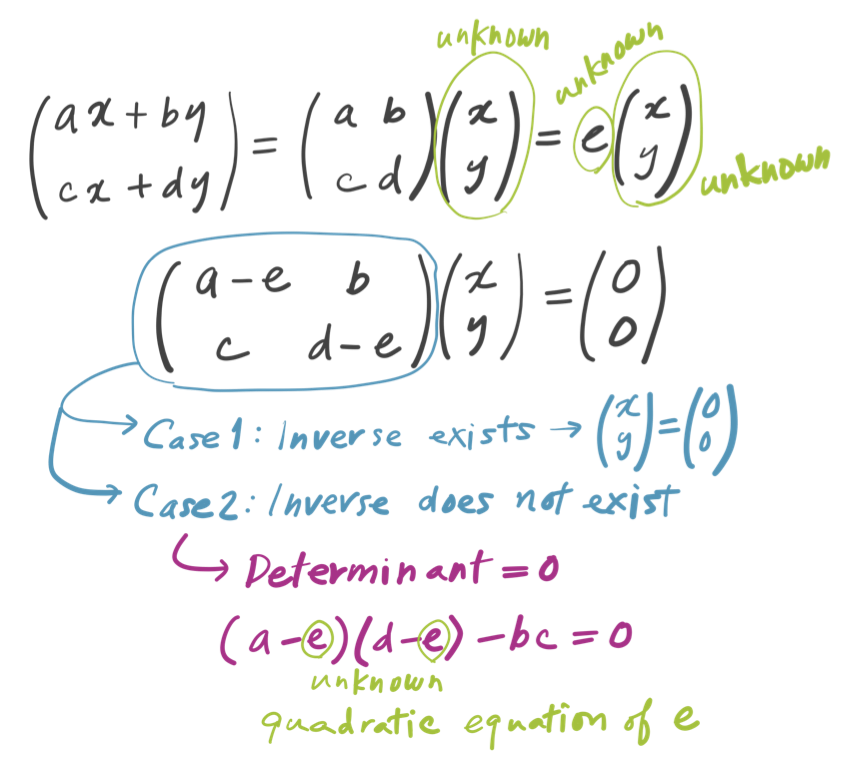 unknown unknown
(ax + by
cx + dy) = (a b
c d)(x
y) = e(x
y) unknown
(a - e b
c d - e)(x
y) = (0
0)
Case 1: Inverse exists → (x
y) = (0
0)
Case 2: Inverse does not exist
Determinant = 0
(a - e)(d - e) - bc = 0
unknown
quadratic equation of e